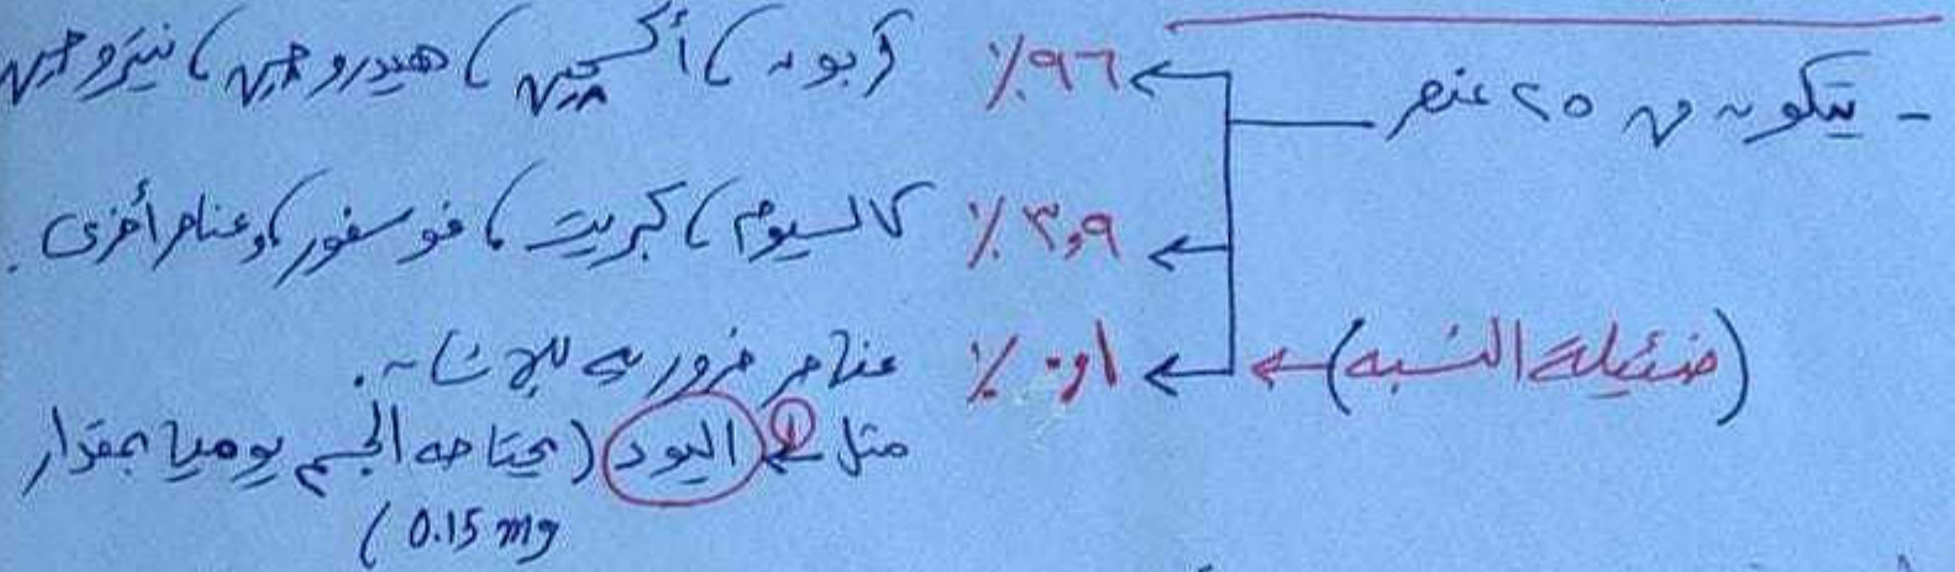 - يتكون من ٢٥ عنصر
٩٦٪ كربون، أكسجين، هيدروجين، نيتروجين
٣,٩٪ كالسيوم، كبريت، فوسفور، وعناصر أخرى.
(ضئيلة النسبه) ٠,١٪ عناصر ضروريه للإنسان.
مثل ① اليود (يحتاجه الجسم يوميا بمقدار
0.15 mg)